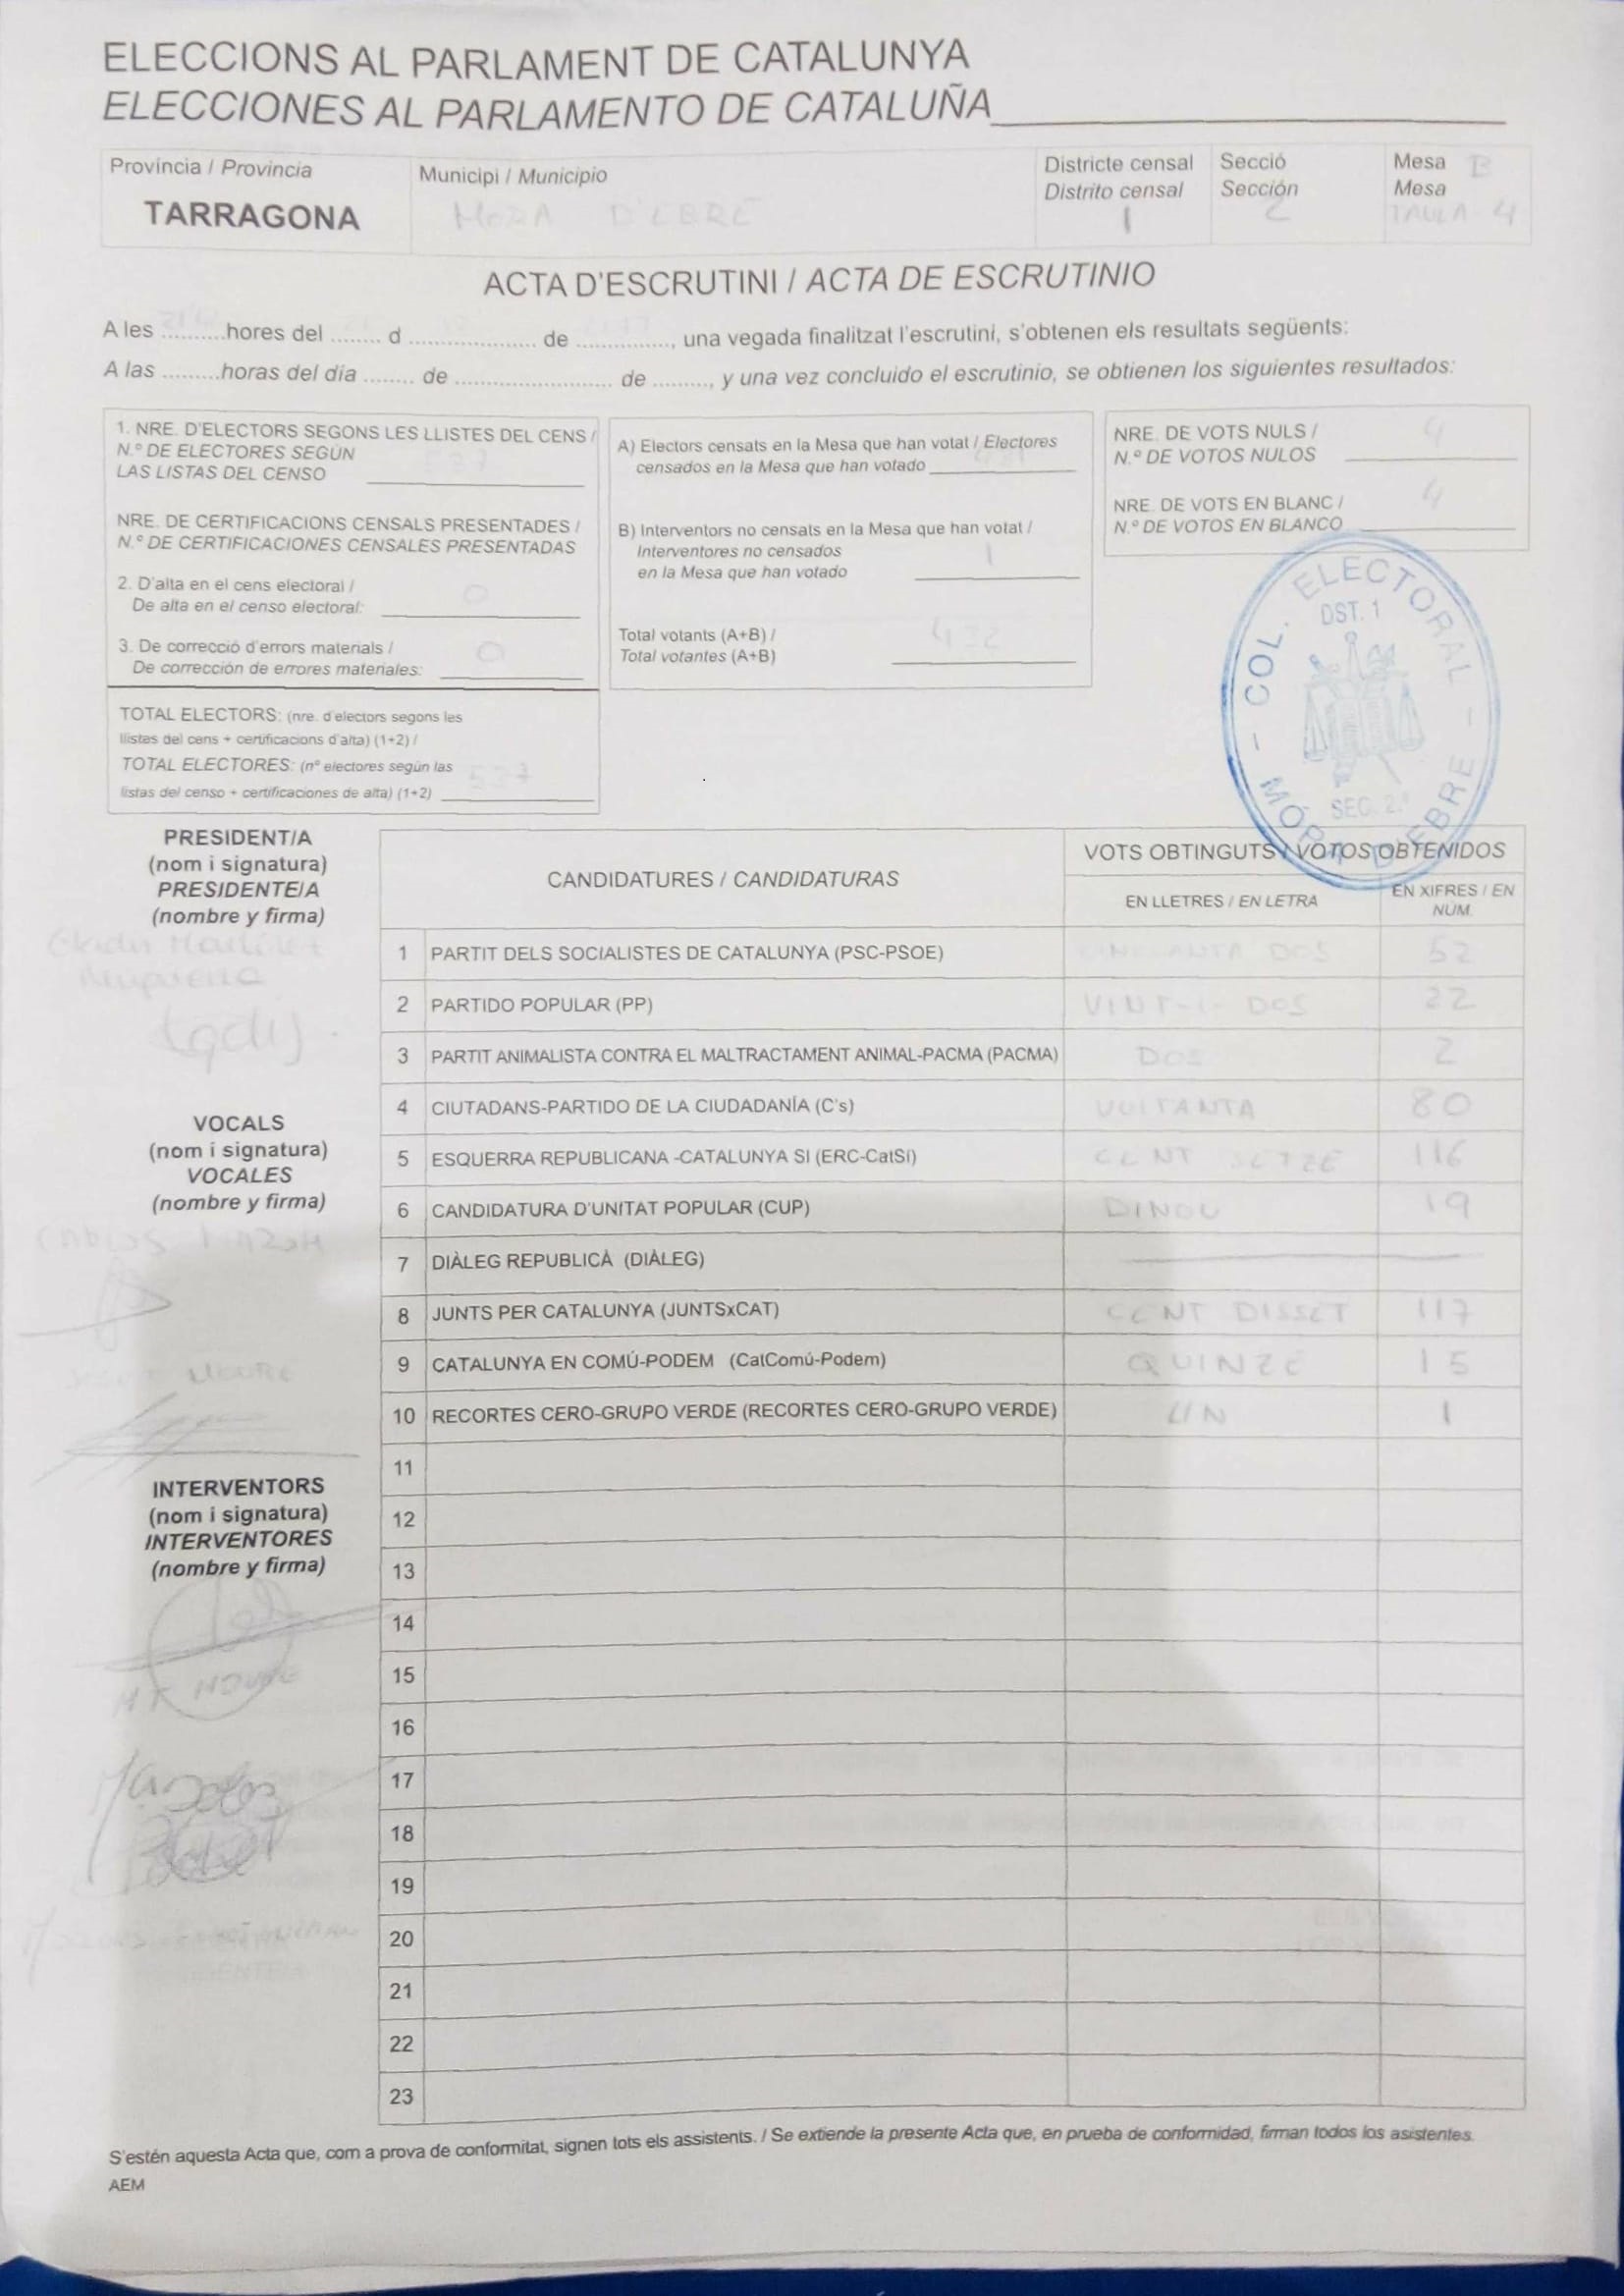 ELECCIONS AL PARLAMENT DE CATALUNYA
ELECCIONES AL PARLAMENTO DE CATALUÑA
Província / Provincia
TARRAGONA
Municipi / Municipio
MORA D'EBRE
Districte censal
Distrito censal
1
Secció
Sección
2
Mesa B
Mesa
TAULA 4
ACTA D'ESCRUTINI / ACTA DE ESCRUTINIO
A les ..........hores del ........ d .................... de ..............., una vegada finalitzat l'escrutini, s'obtenen els resultats següents:
A las .........horas del día ........ de ......................... de .........., y una vez concluido el escrutinio, se obtienen los siguientes resultados:
1. NRE. D'ELECTORS SEGONS LES LLISTES DEL CENS /
N.º DE ELECTORES SEGÚN
LAS LISTAS DEL CENSO
537
NRE. DE CERTIFICACIONS CENSALS PRESENTADES /
N.º DE CERTIFICACIONES CENSALES PRESENTADAS
2. D'alta en el cens electoral /
De alta en el censo electoral: 0
3. De correcció d'errors materials /
De corrección de errores materiales: 0
TOTAL ELECTORS: (nre. d'electors segons les
llistes del cens + certificacions d'alta) (1+2) /
TOTAL ELECTORES: (nº electores según las
listas del censo + certificaciones de alta) (1+2) 537
A) Electors censats en la Mesa que han votat / Electores
censados en la Mesa que han votado 431
B) Interventors no censats en la Mesa que han votat /
Interventores no censados
en la Mesa que han votado 1
Total votants (A+B) /
Total votantes (A+B) 432
NRE. DE VOTS NULS /
N.º DE VOTOS NULOS 4
NRE. DE VOTS EN BLANC /
N.º DE VOTOS EN BLANCO 4
COL. ELECTORAL
DST. 1
SEC. 2.ª
MÓRA D'EBRE
PRESIDENT/A
(nom i signatura)
PRESIDENTE/A
(nombre y firma)
VOCALS
(nom i signatura)
VOCALES
(nombre y firma)
INTERVENTORS
(nom i signatura)
INTERVENTORES
(nombre y firma)
CANDIDATURES / CANDIDATURAS
VOTS OBTINGUTS / VOTOS OBTENIDOS
EN LLETRES / EN LETRA
EN XIFRES / EN
NÚM.
1 PARTIT DELS SOCIALISTES DE CATALUNYA (PSC-PSOE) CINCUANTA DOS 52
2 PARTIDO POPULAR (PP) VINT-I-DOS 22
3 PARTIT ANIMALISTA CONTRA EL MALTRACTAMENT ANIMAL-PACMA (PACMA) DOS 2
4 CIUTADANS-PARTIDO DE LA CIUDADANÍA (C's) VUITANTA 80
5 ESQUERRA REPUBLICANA -CATALUNYA SI (ERC-CatSí) CENT SETZE 116
6 CANDIDATURA D'UNITAT POPULAR (CUP) DINOU 19
7 DIÀLEG REPUBLICÀ (DIÀLEG)
8 JUNTS PER CATALUNYA (JUNTSxCAT) CENT DISSET 117
9 CATALUNYA EN COMÚ-PODEM (CatComú-Podem) QUINZE 15
10 RECORTES CERO-GRUPO VERDE (RECORTES CERO-GRUPO VERDE) UN 1
11
12
13
14
15
16
17
18
19
20
21
22
23
S'estén aquesta Acta que, com a prova de conformitat, signen tots els assistents. / Se extiende la presente Acta que, en prueba de conformidad, firman todos los asistentes.
AEM